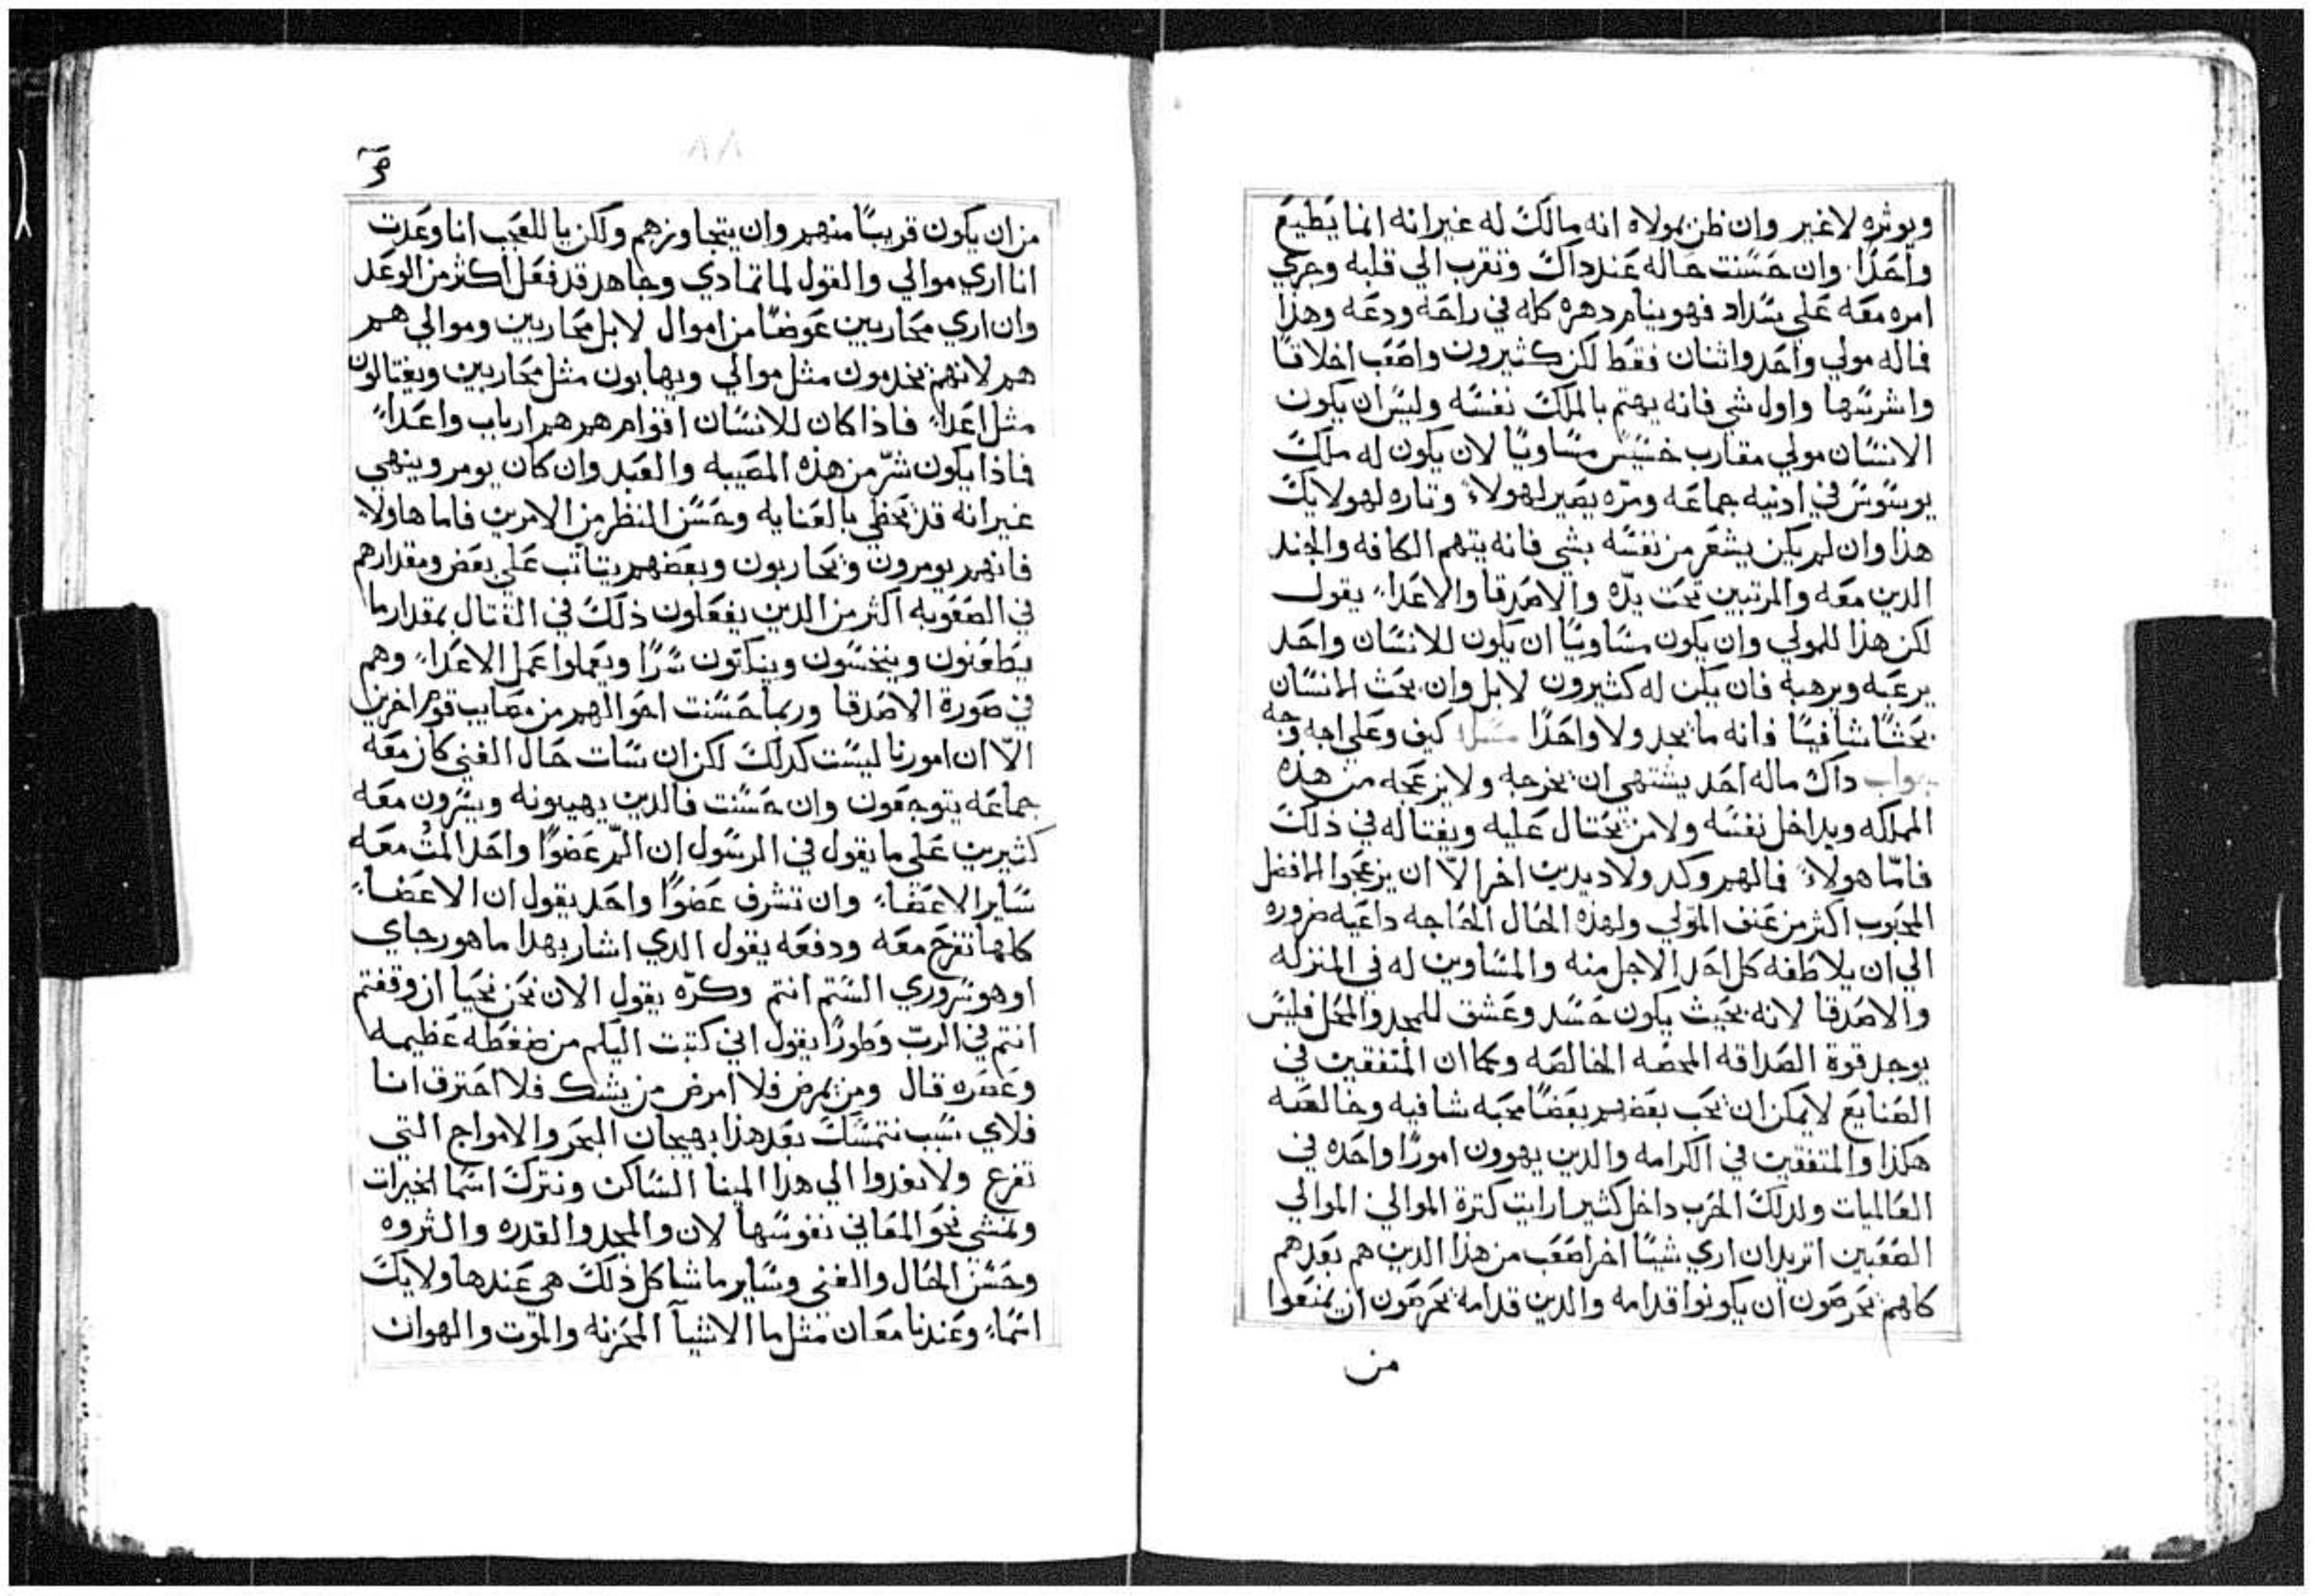 ويوثره لاغير وان ظن بمولاه انه مالك له غير انه انما يطيع
واحدًا. وان حسنت حاله عند داك وتقرب الي قلبه وجري
امره معه علي سداد فهو ينام دهره كله في راحه ودعه وهذا
فاله مولي واحد واثنان فقط لكن كثيرون واصعب اخلاقًا
واشرسها واول شي فانه يهتم بالملك نفسه وليس ان يكون
الانسان مولي مقارب خسيس مساويًا لان يكون له ملك
يوسوس في ادنيه جماعه ومرّه يصير لهولاء وتاره لهولايك
هذا وان لم يكن يشعر من نفسه بشي فانه يتهم الكافه والجند
الدين معه والمرتبين تحت يدّه والاصدقا والاعداء يقول
لكن هذا للمولي وان يكون مساويًا ان يكون للانسان واحد
يرعبه ويرهبه فان يكن له كثيرون لابل وان بحث الانسان
بحثًا شافيًا فانه ما يجد ولا واحدًا مسل كيف وعلي اجه وجه
جواب داك ماله احد يشتهي ان يخرجه ولا يزعجه من هذه
المملكه ويداخل نفسه ولا من يحتال عليه ويغتاله في ذلك
فامّا هولاء فالهم وكد ولا ديدين اخر الاّ ان يزعجوا الافضل
المحبوب اكثر من عنف المولي ولهذه الحال الحاجه داعيه ضروره
الي ان يلاطفه كل احد الاجل منه والمساوين له في المنزله
والاصدقا لانه بحيث يكون حسد وعشق للمجد والمحل فليس
يوجد قوة الصداقه المحضه الخالصه وكما ان المتفقين في
الصنايع لا يمكن ان يحب بعضهم بعضًا محبه شافيه وخالصه
هكذا والمتفقين في الكرامه والدين يهوون امورًا واحده في
العالميات ولدلك الحرب داخل كثير ارايت كترة الموالي الموالي
الصعبين اتريد ان اري شيئًا اخر اصعب من هذا الدين هم بعدهم
كلهم يحرصون ان يكونوا قدامه والدين قدامه يحرصون ان يمنعوا
من
من ان يكون قريبًا منهم وان يتجاوزهم ولكن يا للعجب انا وعدت
انا اري موالي والقول لما تمادي وجاهد قد فعل اكثر من الوعد
وان اري محاربين عوضًا من اموال لا بل محاربين وموالي هم
هم لانهم يخدمون مثل موالي ويهابون مثل محاربين ويغتالون
مثل اعداء فاذا كان للانسان اقوام هم هم ارباب واعداء
فاذا يكون شرّ من هذه المصيبه والعبد وان كان يومر وينهي
غير انه قد يحظي بالعنايه وحسن النظر من الامرين فاما هاولاء
فانهم يومرون ويحاربون وبعضهم يتاتب علي بعض ومقدارهم
في الصعوبه اكثر من الدين يفعلون ذلك في القتال بمقدار ما
يطعنون وينخسون وينكتون سرًا ويعملوا عمل الاعداء وهم
في صورة الاصدقا وربما حسنت احوالهم من مصايب قوم اخرين
الاّ ان امورنا ليست كدلك لكن ان سات حال الغني كان معه
جماعه يتوجعون وان حسنت فالدين يهيبونه ويسرون معه
كثيرين علي ما يقول في الرسول ان الم عضوًا واحد الم معه
ساير الاعضاء وان تشرف عضوًا واحد يقول ان الاعضاء
كلها تفرح معه ودفعه يقول الدي اشار بهدا ما هو رجاي
او هو سروري الستم انتم وكرّه يقول الان نحن نحيا ان وقفتم
انتم في الربّ وطورًا يقول اني كتبت اليكم من ضغطه عظيمه
وعصره قال ومن يمرض فلا امرض من يشك فلا احترق انا
فلاي سبب نتمسك بعد هذا بهيجان البحر والامواج التي
تفزع ولا نغدوا الي هدا المينا الساكن ونترك اسما الخيرات
ونمشي نحو المعاني نفوسها لان والمجد والقدره والثروه
وحسن الحال والغني وساير ما شاكل ذلك هي عندها ولايك
اسماء وعندنا معان مثل ما الاشيآ المحزنه والموت والهوان